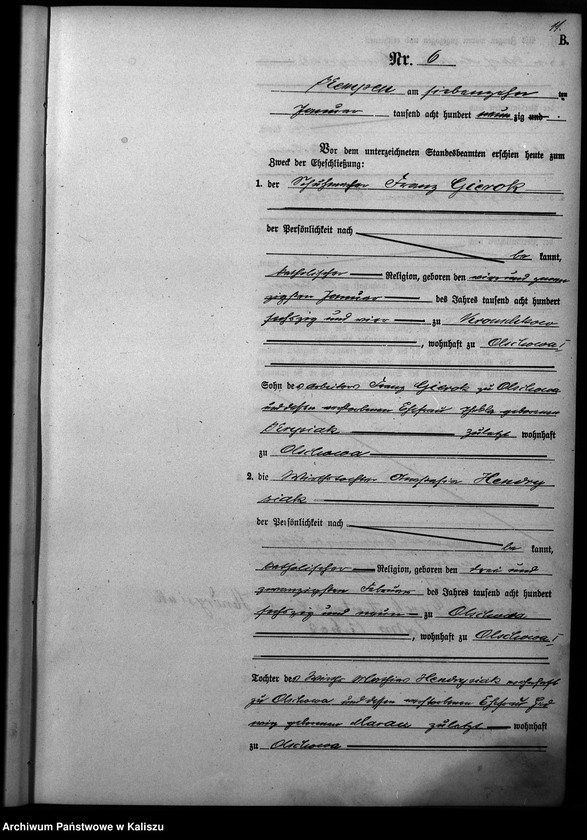 11.
B.
Nr. 6
Kempen am siebenzehn ten
Januar tausend acht hundert neunzig und .
Vor dem unterzeichneten Standesbeamten erschien heute zum
Zweck der Eheschließung:
1. der Schuhmacher Franz Gierok
der Persönlichkeit nach
be kannt,
katholischer Religion, geboren den vier und zwan
zigsten Januar des Jahres tausend acht hundert
sechszig und vier zu
, wohnhaft zu Olschowa I
Sohn des Arbeiters Franz Gierok zu Olschowa
und dessen verstorbenen Ehefrau geborenen
zuletzt wohnhaft
zu Olschowa
2. die Wirthstochter Anastasia Hendry
siak
der Persönlichkeit nach
be kannt,
katholischer Religion, geboren den drei und
zwanzigsten Februar des Jahres tausend acht hundert
sechszig und neun zu Olschowa
, wohnhaft zu Olschowa I
Tochter des Wirths Mathias Hendrysiak wohnhaft
zu Olschowa und dessen verstorbenen Ehefrau Hed
wig geborenen Maran zuletzt wohnhaft
zu Olschowa
Archiwum Państwowe w Kaliszu